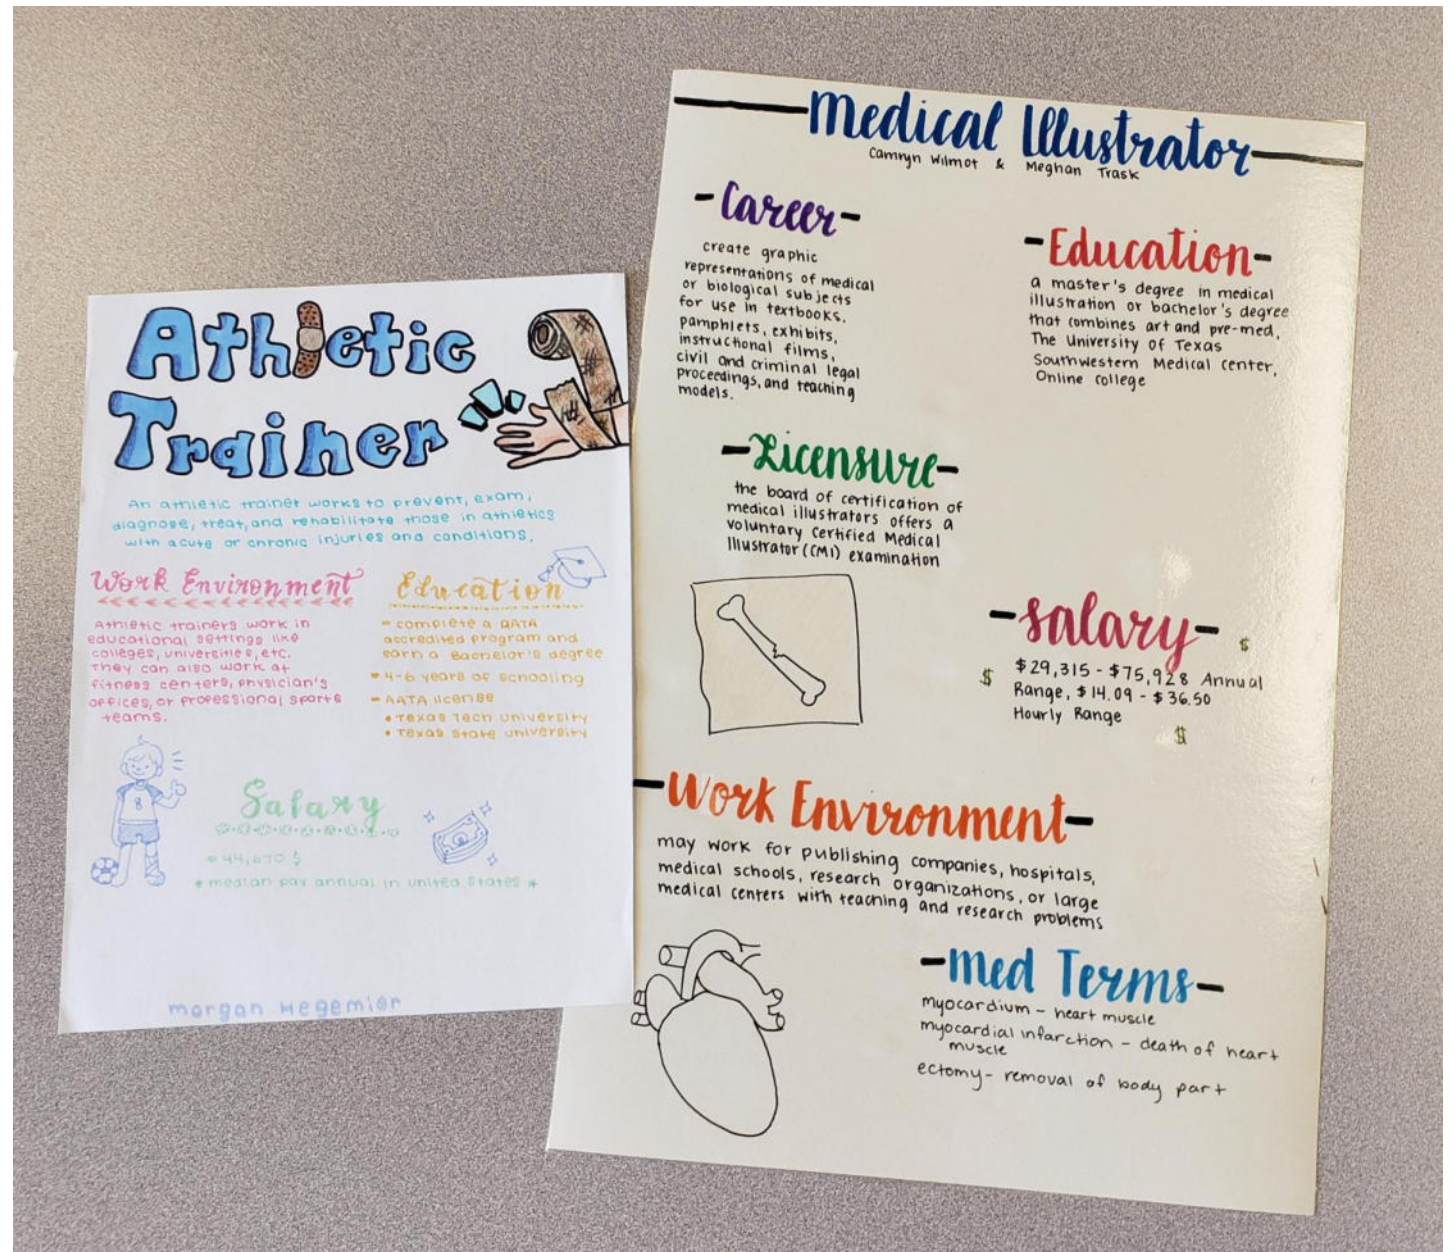 Athletic
Trainer
An athletic trainer works to prevent, exam,
diagnose, treat, and rehabilitate those in athletics
with acute or chronic injuries and conditions.
Work Environment
Athletic trainers work in
educational settings like
colleges, universities, etc.
They can also work at
fitness centers, physician's
offices, or professional sports
teams.
Education
- complete a AATA
accredited program and
earn a Bachelor's degree
- 4-6 years of schooling
- AATA license
• Texas Tech University
• Texas State University
8
Salary
44,670 $
* median pay annual in United States *
morgan Hegemier
Medical Illustrator
Camryn Wilmot & Meghan Trask
-Career-
create graphic
representations of medical
or biological subjects
for use in textbooks,
pamphlets, exhibits,
instructional films,
civil and criminal legal
proceedings, and teaching
models.
-Education-
a master's degree in medical
illustration or bachelor's degree
that combines art and pre-med,
The University of Texas
Southwestern Medical center,
Online college
-Licensure-
the board of certification of
medical illustrators offers a
voluntary certified Medical
Illustrator (CMI) examination
-Salary-
$
$
$29,315 - $75,928 Annual
Range, $14.09 - $36.50
Hourly Range
$
-Work Environment-
may work for publishing companies, hospitals,
medical schools, research organizations, or large
medical centers with teaching and research problems
-Med Terms-
myocardium - heart muscle
myocardial infarction - death of heart
muscle
ectomy - removal of body part